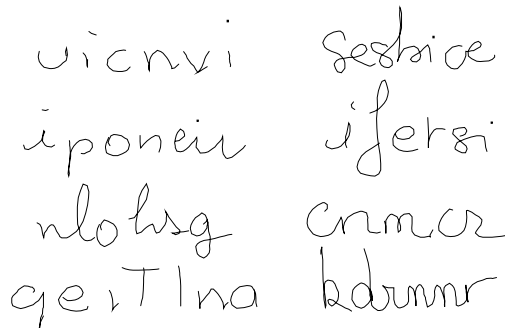 uicnvi sesbice
iponeiu ifersi
nlohsg cnmcr
qeiTlna kdrnnr